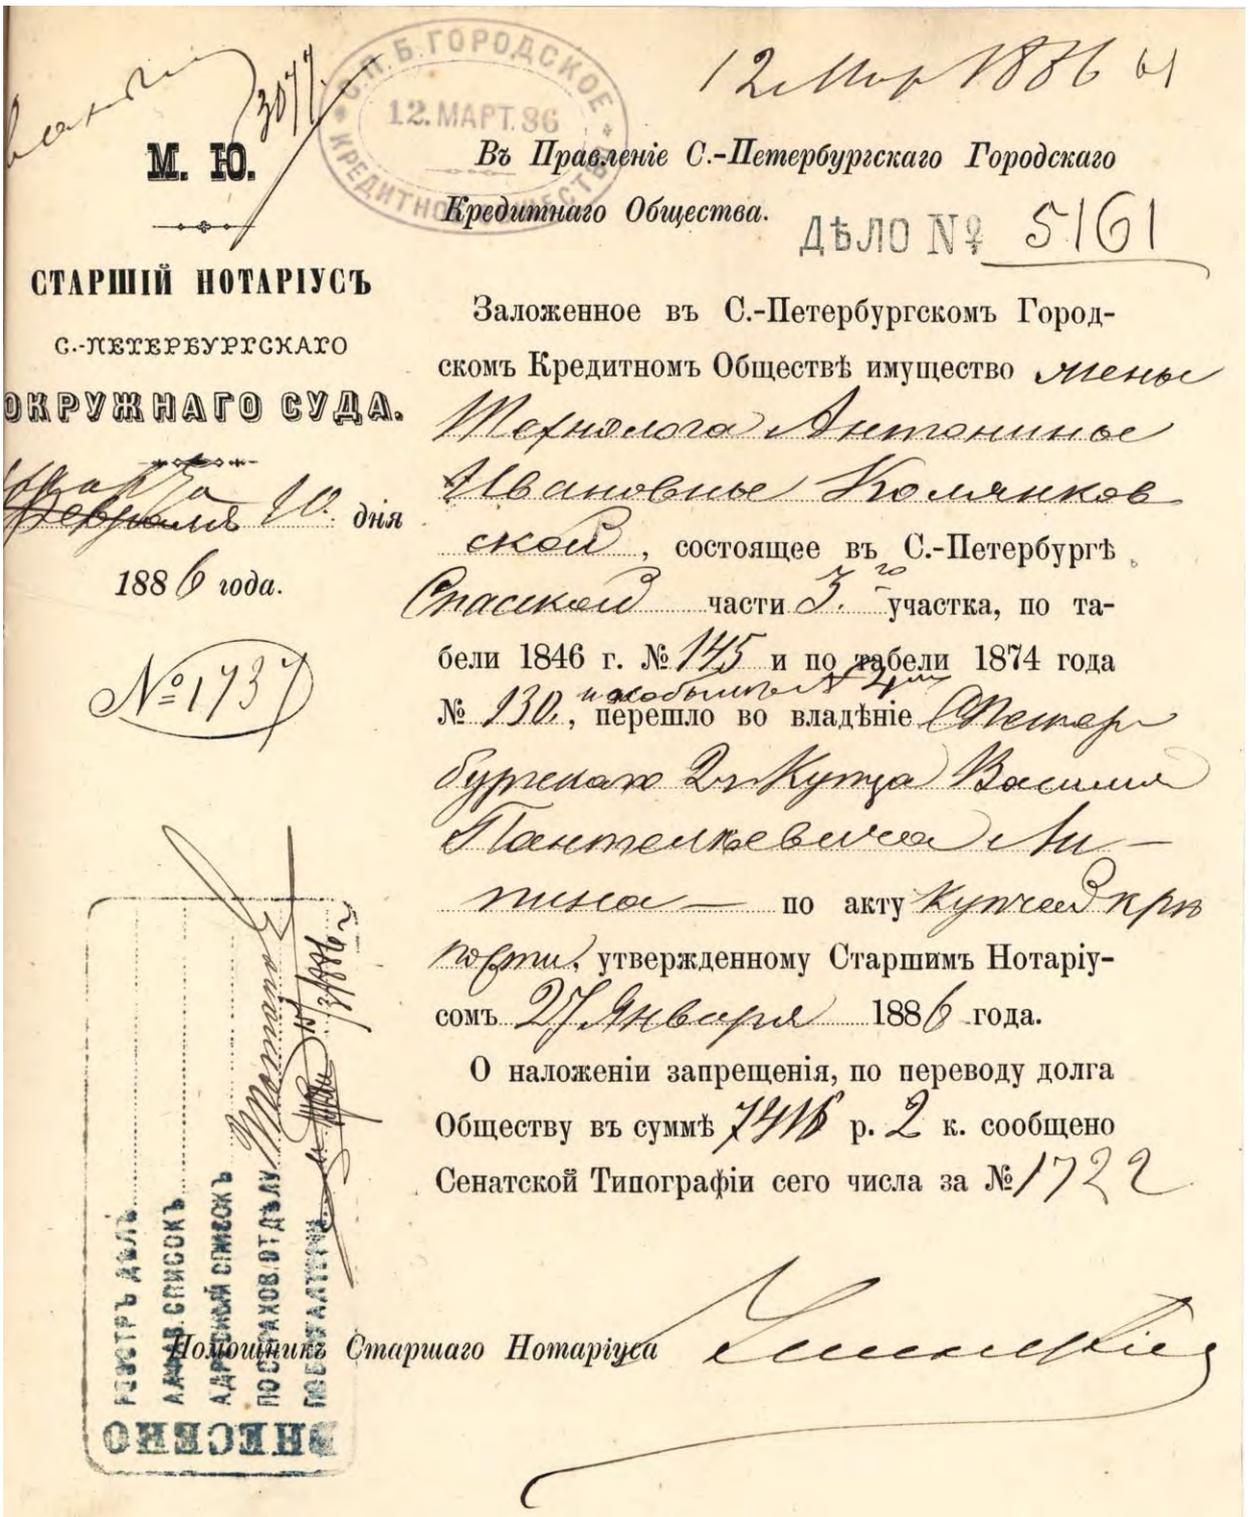 12 Мар 1886
3077
С.П.Б. ГОРОДСКОЕ КРЕДИТНОЕ ОБЩЕСТВО
12. МАРТ. 86
М. Ю.
СТАРШІЙ НОТАРІУСЪ
С.-ПЕТЕРБУРГСКАГО
ОКРУЖНАГО СУДА.
Марта
Февраля 10. дня
1886 года.
№ 1737
Въ Правленіе С.-Петербургскаго Городскаго
Кредитнаго Общества.
ДѢЛО № 5161
Заложенное въ С.-Петербургскомъ Город-
скомъ Кредитномъ Обществѣ имущество жены
Технолога Антонины
Ивановны Колянков
ской, состоящее въ С.-Петербургѣ
Спасской части 3.го участка, по та-
бели 1846 г. № 145 и по табели 1874 года
№ 130, перешло во владѣніе СПетер
бургскаго 2й Купца Василія
Пантелѣевича Ли-
пина — по акту купчей крѣ
пости, утвержденному Старшимъ Нотаріу-
сомъ 27 Января 1886 года.
О наложеніи запрещенія, по переводу долга
Обществу въ суммѣ 7416 р. 2 к. сообщено
Сенатской Типографіи сего числа за № 1722
Помощникъ Старшаго Нотаріуса
ВНЕСЕНО
РЕЕСТРЪ ДѢЛЪ
АЛФАВ. СПИСОКЪ
АДРЕСНЫЙ СПИСОКЪ
ПО СТРАХОВ. ОТДѢЛУ
ПО БУХГАЛТЕРІИ